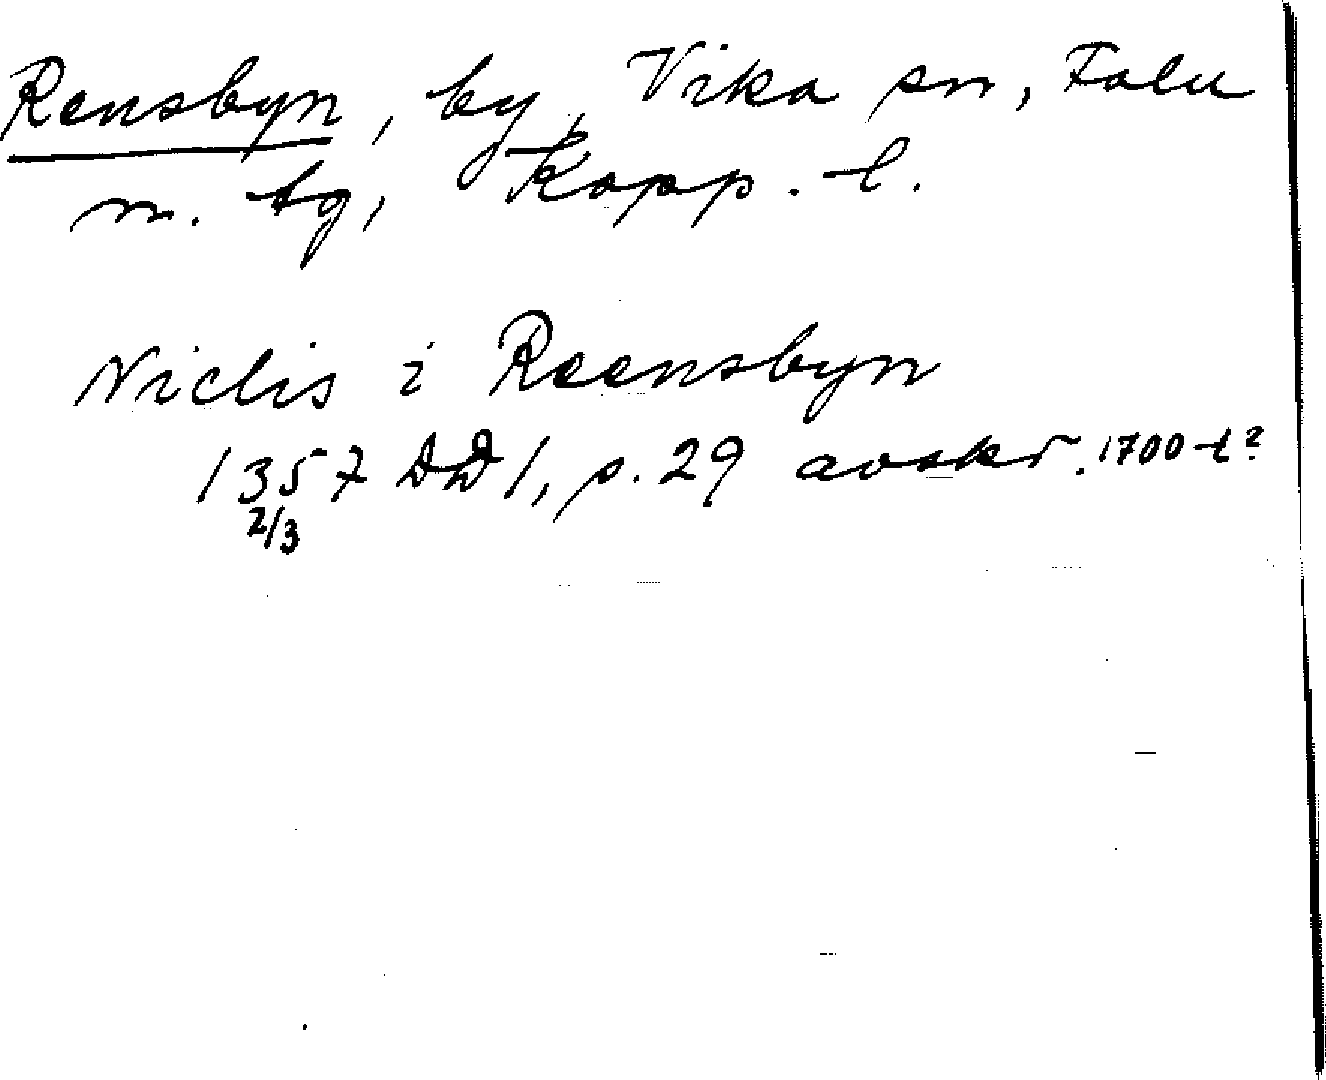 Rensbyn, by, Vika sn, Falu
n. tg, Kopp. l.
Niclis i Reensbyn
1357 DD 1, s. 29 avskr. 1700-t?
2/3